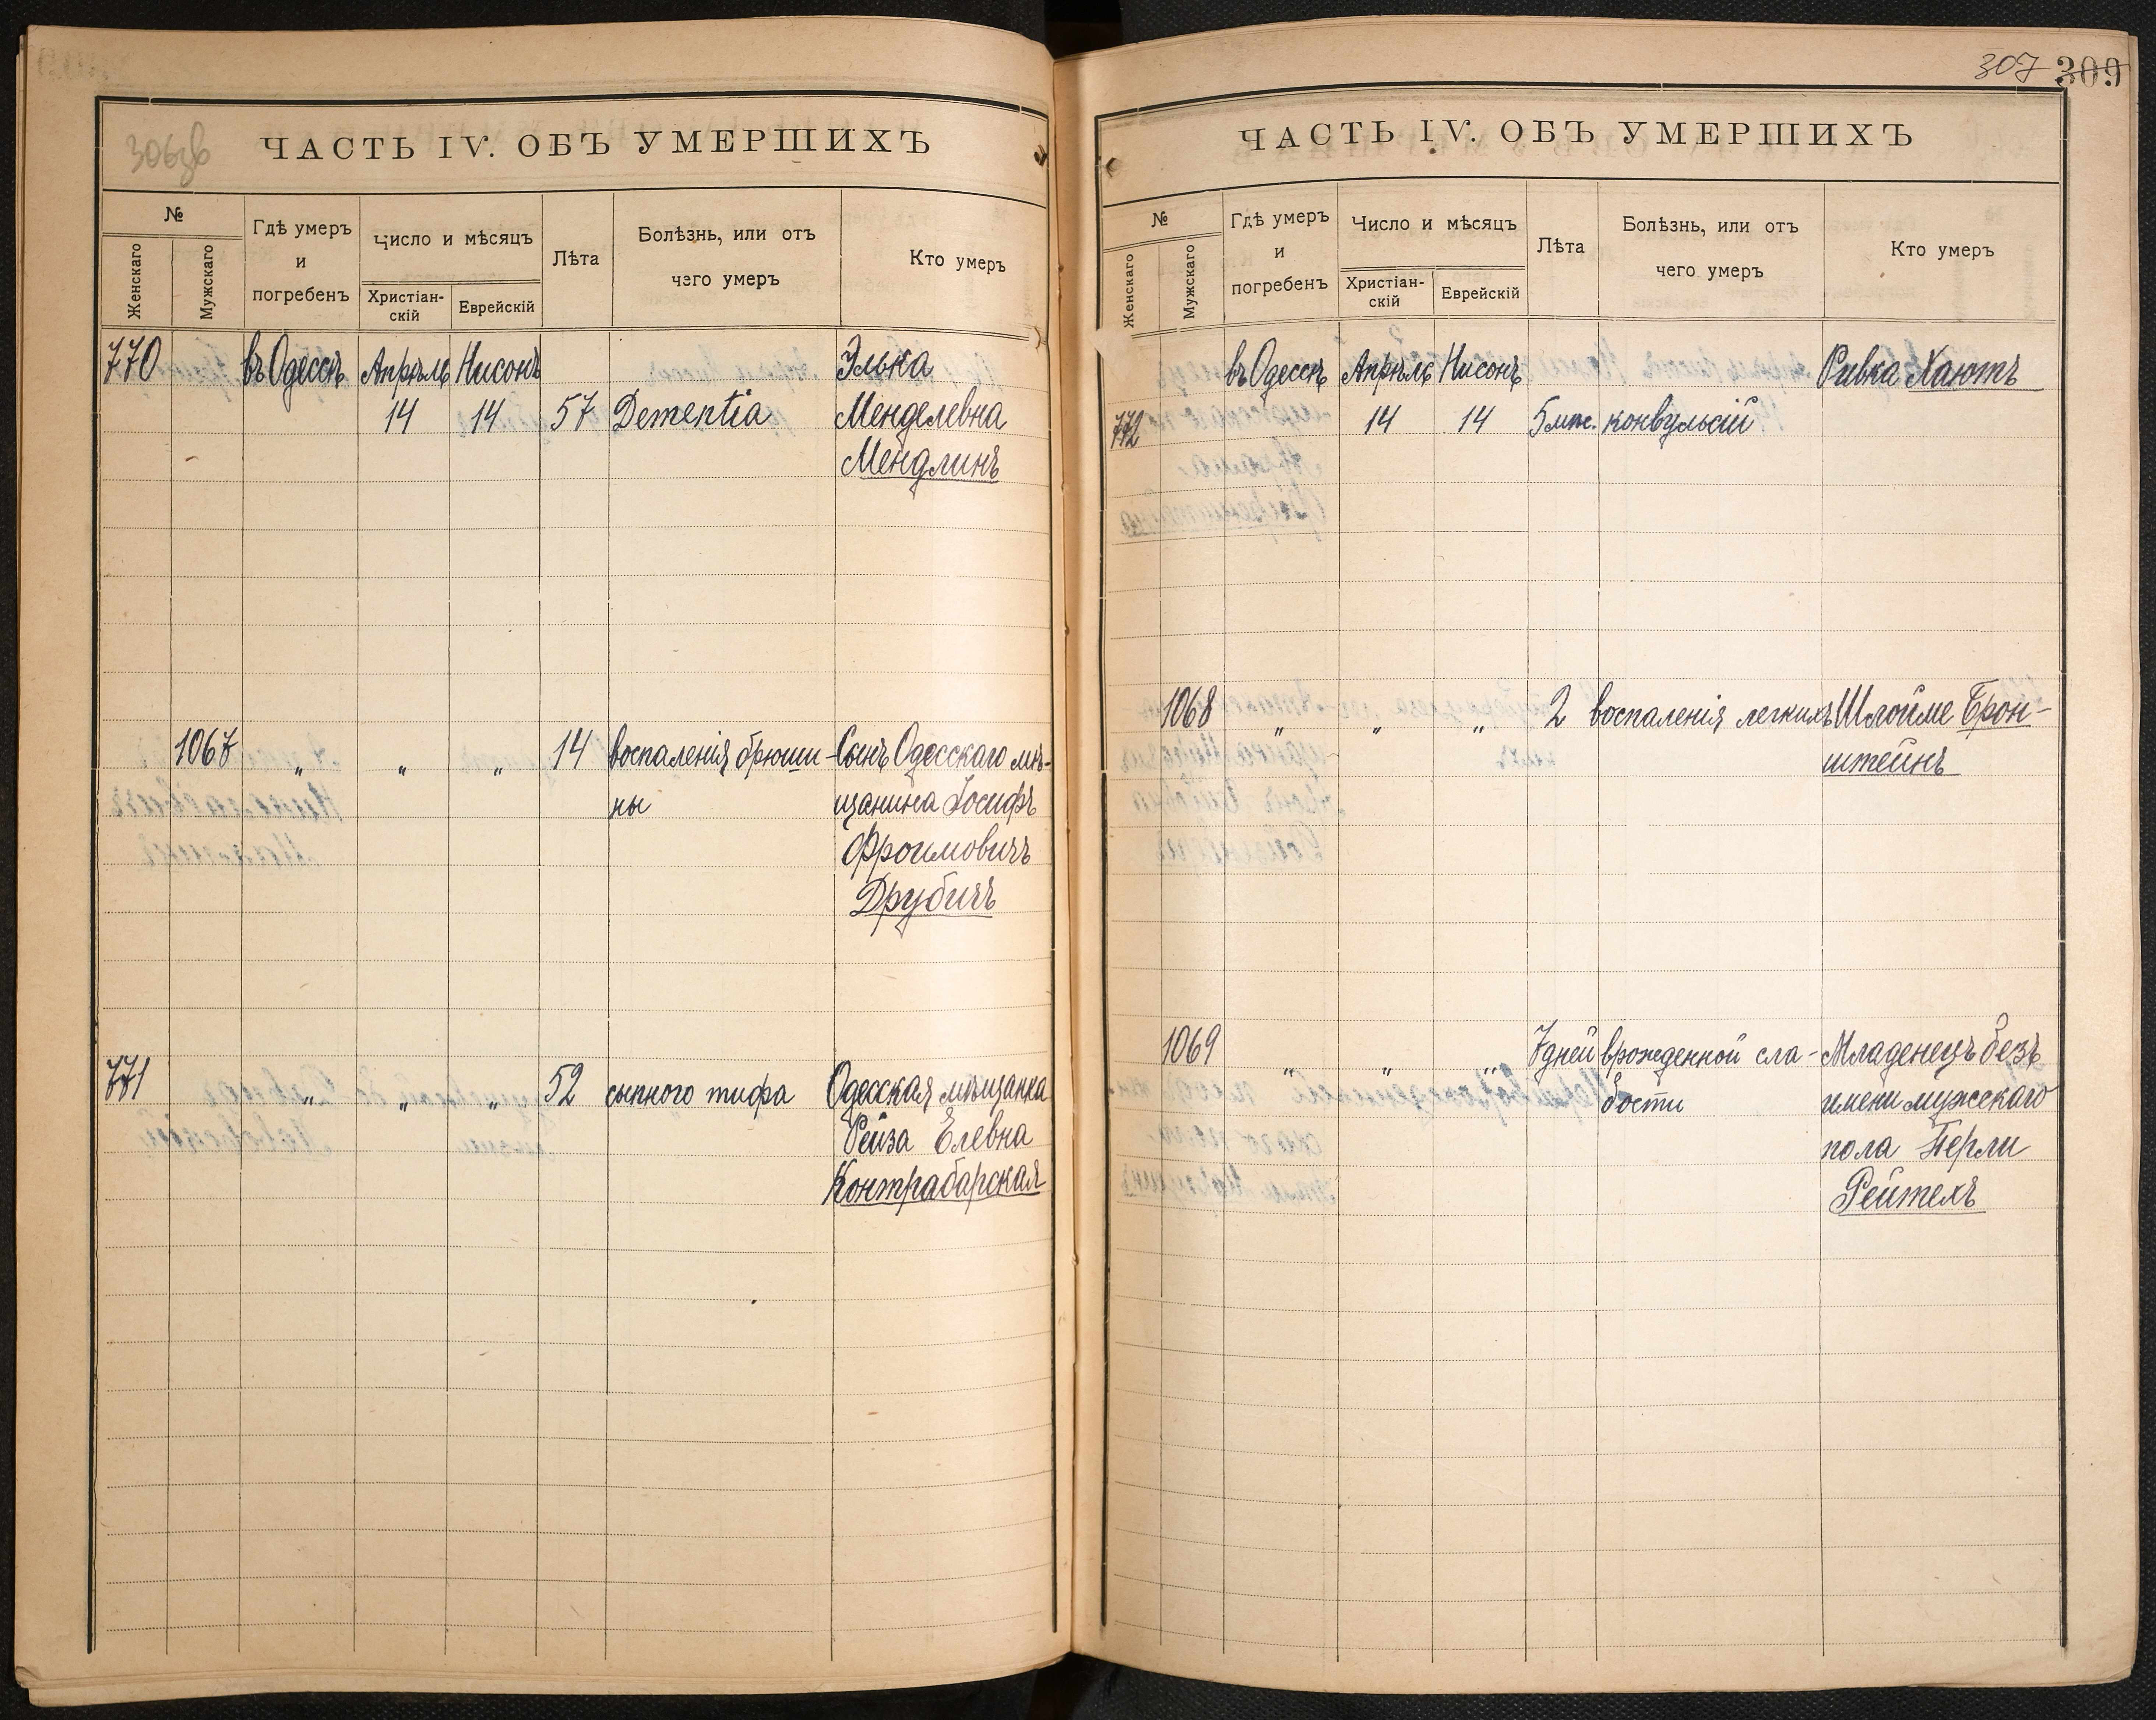 306зв
ЧАСТЬ IV. ОБЪ УМЕРШИХЪ
№
Женскаго
Мужскаго
Гдѣ умеръ
и
погребенъ
Число и мѣсяцъ
Христіан-
скій
Еврейскій
Лѣта
Болѣзнь, или отъ
чего умеръ
Кто умеръ
770 въ Одессѣ Апрѣль Нисонъ Элька
14 14 57 Dementia Менделевна
Мендлинъ
1067 " " " 14 воспаленія брюши- Сынъ Одесскаго мѣ-
ны щанина Іосифъ
Фроимовичъ
Друбичъ
771 " " " 52 сыпного тифа Одесская мѣщанка
Рейза Елевна
Контрабарская
307 309
ЧАСТЬ IV. ОБЪ УМЕРШИХЪ
№
Женскаго
Мужскаго
Гдѣ умеръ
и
погребенъ
Число и мѣсяцъ
Христіан-
скій
Еврейскій
Лѣта
Болѣзнь, или отъ
чего умеръ
Кто умеръ
въ Одессѣ Апрѣль Нисонъ Ривка Хаютъ
772 14 14 5 мѣс. конвульсій
1068 " " " 2 воспаленія легкихъ Шлойме Брон-
штейнъ
1069 " " " 7 дней врожденной сла- Младенецъ безъ
бости имени мужскаго
пола Перли
Рейтехъ